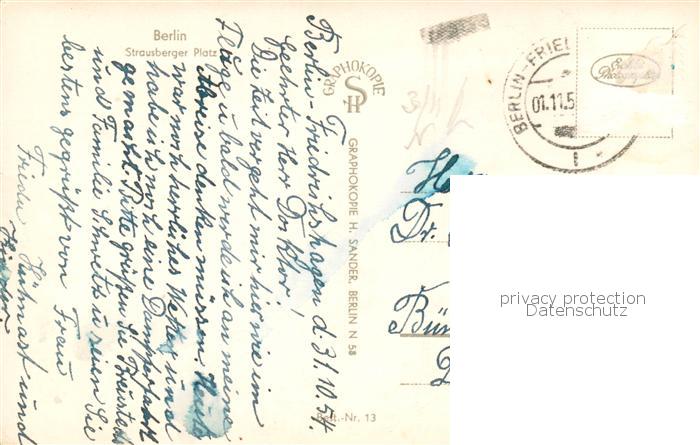 Berlin
Strausberger Platz
Berlin-Friedrichshagen d. 31.10.54
geehrter Herr Doktor!
Die Zeit vergeht mir hier wie im
Fluge u. bald werde ich an meine
Abreise denken müssen. Heute
war noch herrliches Wetter und
habe ich noch eine Dampferfahrt
gemacht. Bitte grüßen Sie
und Familie seien Sie
bestens gegrüßt von Frau
Frieda und
Kinder
GRAPHOKOPIE
SH
GRAPHOKOPIE H. SANDER, BERLIN N 58
Best.-Nr. 13
BERLIN-FRIE
01.11.5
Echte
Photographie
Dr.
Bün
privacy protection
Datenschutz